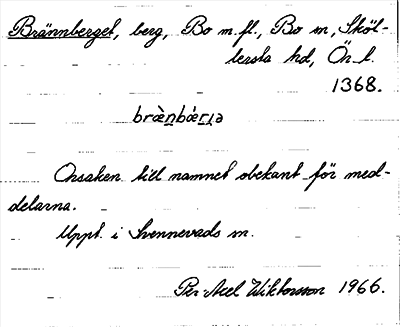 Brännberget, berg, Bo m.fl., Bo sn, Sköl-
lersta hd, Ör. l.
1368.
bræ̀n̠bær̠ɪ̠ə
Orsaken till namnet obekant för med-
delarna.
Uppt. i Svennevads sn.
Per Axel Wiktorsson 1966.